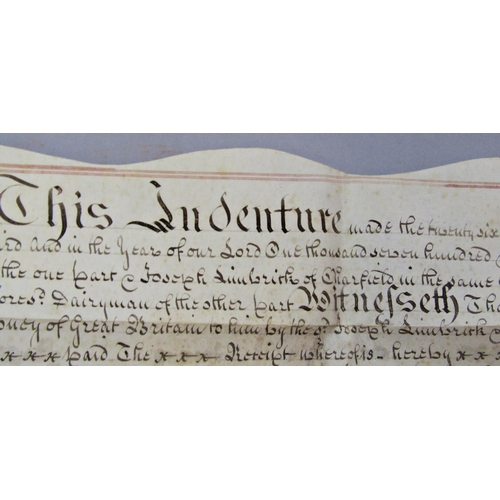 This Indenture made the twenty six
ird And in the Year of our Lord One thousand seven hundred
the one part & Joseph Limbrick of Charfield in the same
fores.d Dairyman of the other part Witnesseth Tha
oney of Great Britain to him by the s.d Joseph Limbrick
x x x paid The x x x Receipt whereof is hereby x x